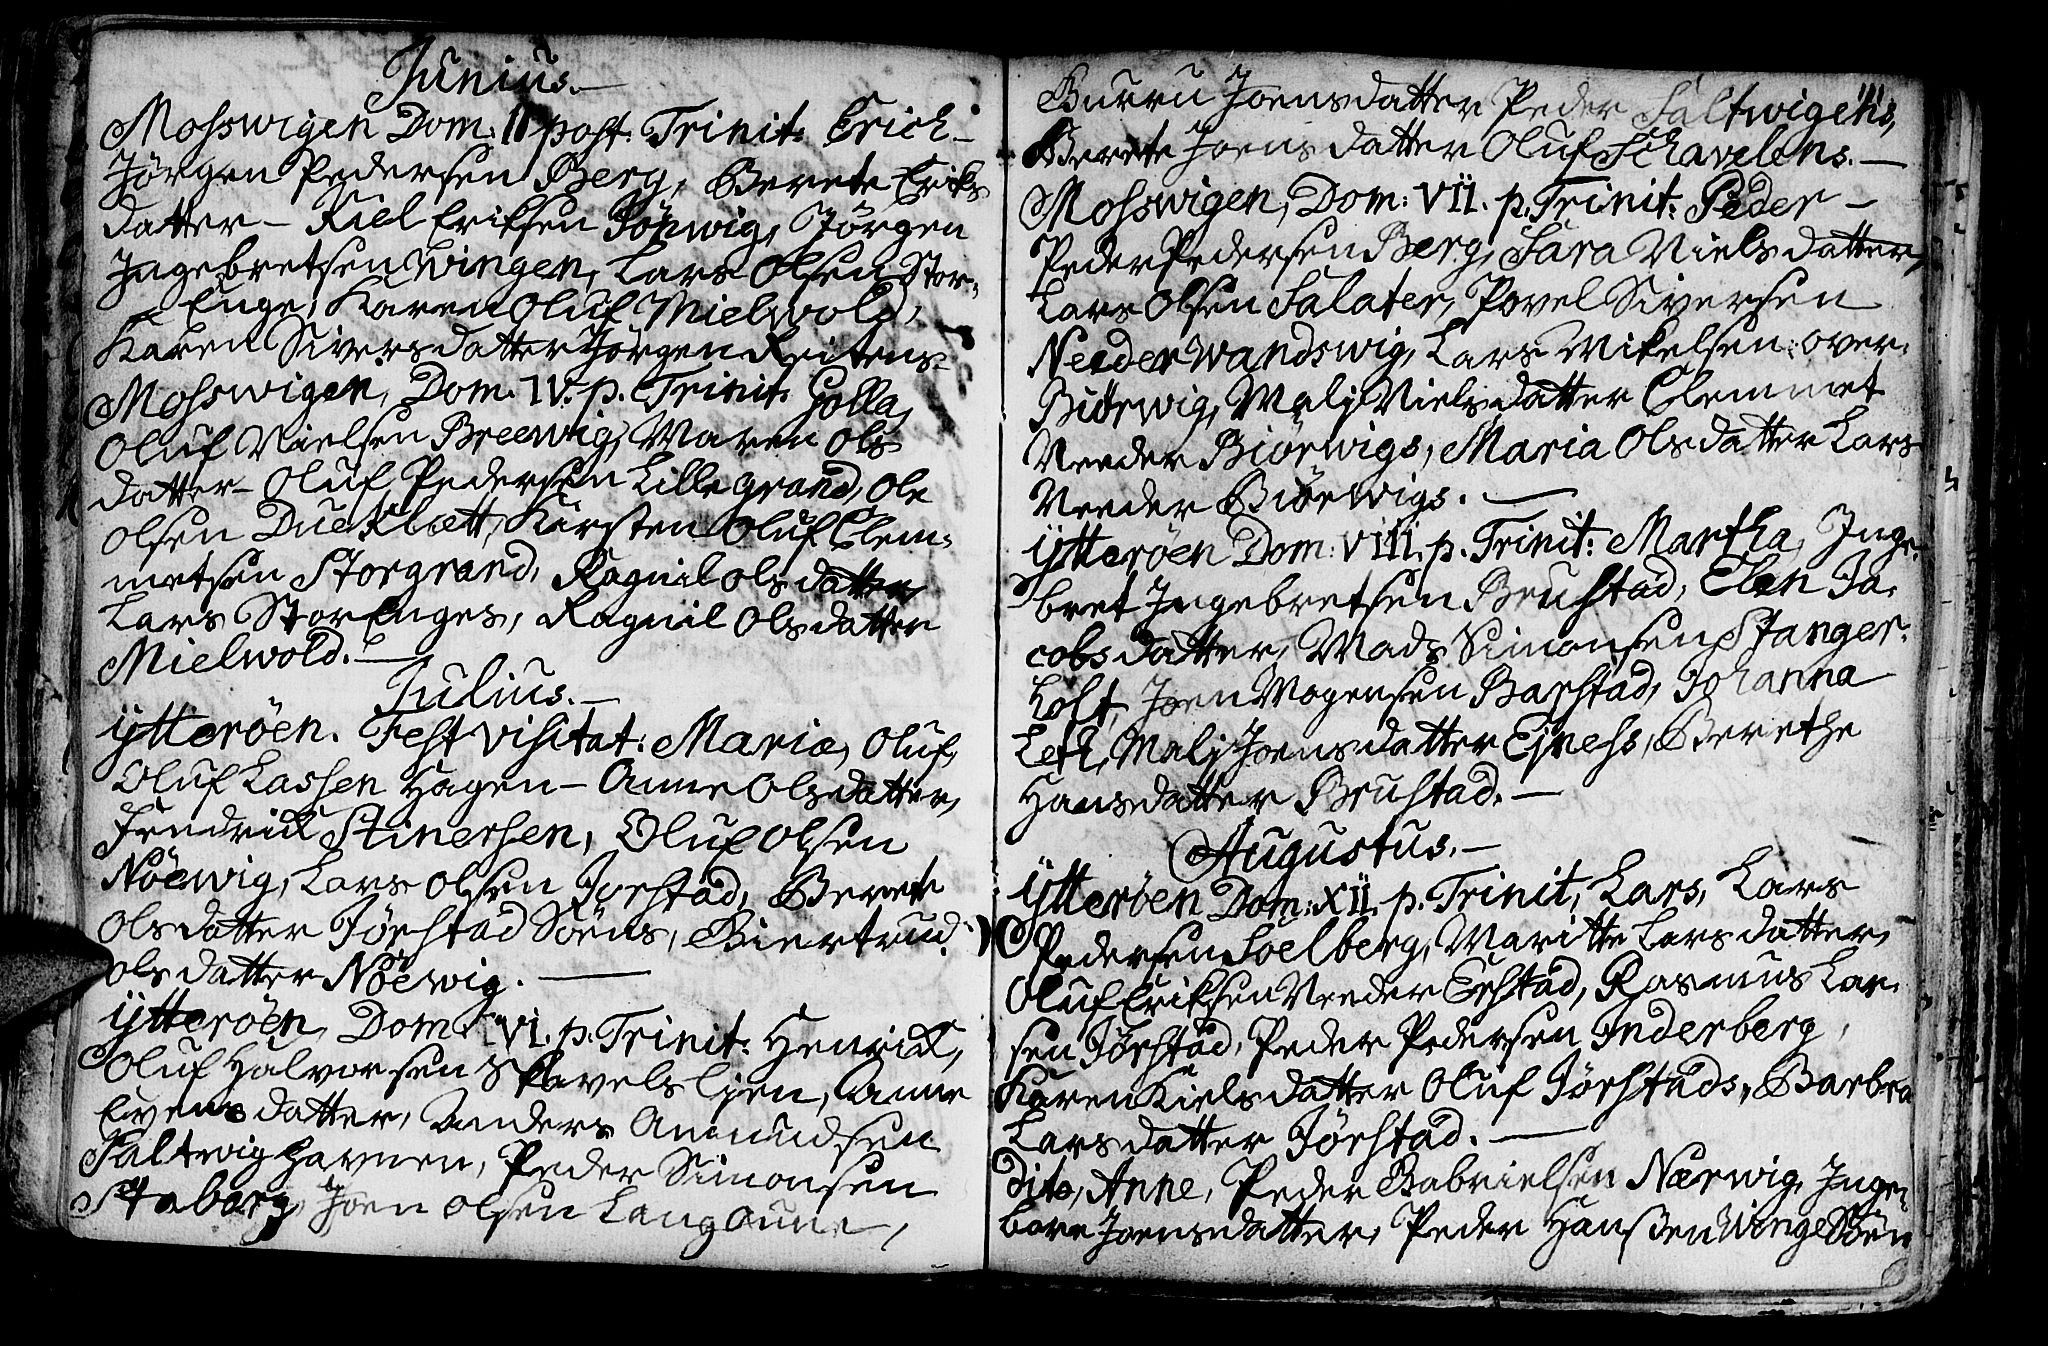 Junius.
Mosswigen Dom: II post: Trinit: Erich
Jörgen Pedersen Berg, Berete Eriks
datter - Kiel Eriksen Wingen, Jörgen
Ingebretsen Wingen, Lars Olsen Stor-
Enge, Karen Oluf Mielwold,
Karen Siversdatter Jörgen Reitens
Mosswigen, Dom. IV. p. Trinit: Golla,
Oluf Nielsen Breewig, Maren Ols
datter - Oluf Pedersen Lille Grand, Ole
Olsen Dueklætt, Kirsten Oluf Clem-
metsen Storgrand, Ragnil Olsdatter
Lars StorEnges, Ragnil Olsdatter
Mielwold.
Julius.
Ytterøen. Fest Visitat: Mariæ, Oluf,
Oluf Lassen Hagen - Anne Olsdatter,
Fredrick Stinersen, Oluf Olsen
Nöewig, Lars Olsen Jørstad, Beret
Olsdatter Jørstad Söens, Giertrud
Olsdatter Nöewig.
Ytterøen, Dom VI. p. Trinit: Henrick,
Oluf Halvorsen Skavelslien, Anne
Evensdatter, Anders Amundsen
Saltwighavnen, Peder Simonsen
Staborg, Joen Olsen Langaune,
111
Gurru Joensdatter Peder Saltwigens,
Berete Joensdatter Oluf Schavelens.
Mosswigen, Dom: VII. p. Trinit: Peder
Peder Pedersen Berg, Sara Nielsdatter,
Lars Olsen Salater, Povel Siversen
Needer Wandswig, Lars Mikelsen over
Biörwig, Malj Nielsdatter Clemmet
Needer Biörwigs, Maria Olsdatter Lars
Needer Biörwigs.
Ytterøen Dom: VIII. p. Trinit: Martha, Inge-
bret Ingebretsen Brustad, Elen Ja-
cobsdatter, Mads Simonsen Stanger-
holt, Joen Mogensen Barstad, Johanna
Leth, Malj Joensdatter Ejness, Berethe
Hansdatter Brustad.
Augustus.
Ytterøen Dom: XII. p. Trinit, Lars, Lars
Pedersen Soelberg, Maritte Larsdatter,
Oluf Eriksen Needer Erstad, Rasmus Lar-
sen Jørstad, Peder Pedersen Inderberg,
Karen Kielsdatter Oluf Jørstads, Barbra
Larsdatter Jørstad.
Dito, Anne, Peder Gabrielsen Nærwig, Inge-
bore Joensdatter, Peder Hanssen Winge Söen